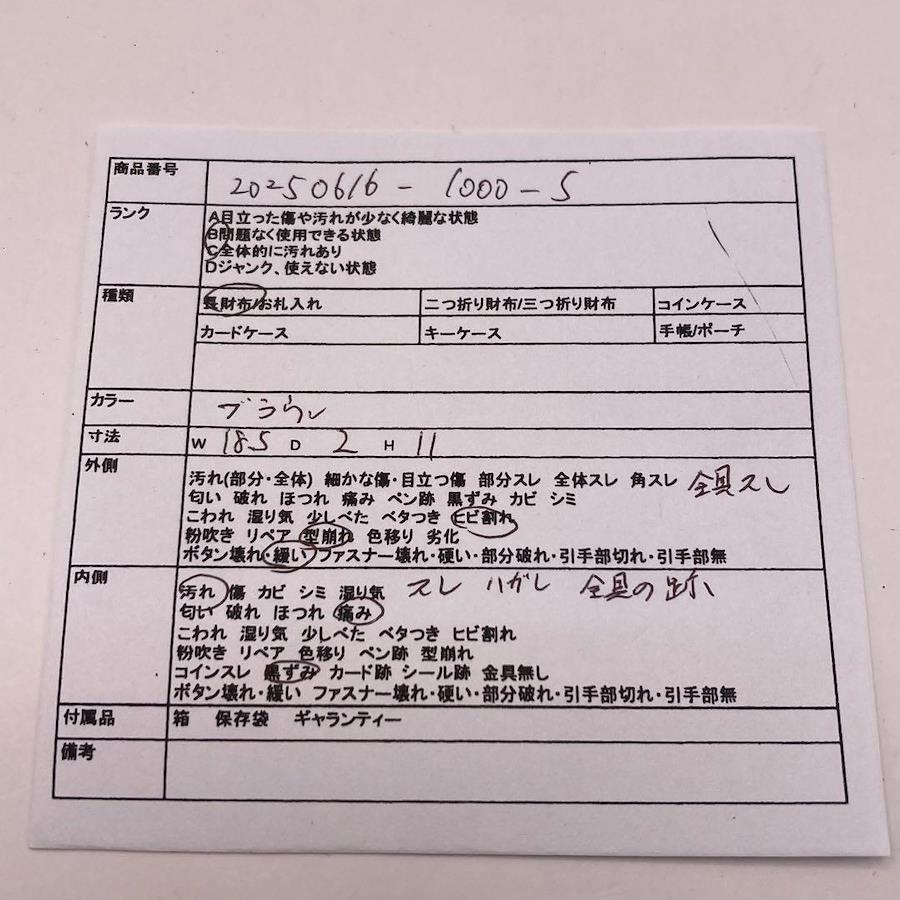 商品番号 20250616-1000-5
ランク A目立った傷や汚れが少なく綺麗な状態
B問題なく使用できる状態
C全体的に汚れあり
Dジャンク、使えない状態
種類 長財布/お札入れ 二つ折り財布/三つ折り財布 コインケース
カードケース キーケース 手帳/ポーチ
カラー ブラウン
寸法 W 18.5 D 2 H 11
外側 汚れ(部分・全体) 細かな傷・目立つ傷 部分スレ 全体スレ 角スレ 金具スレ
匂い 破れ ほつれ 痛み ペン跡 黒ずみ カビ シミ
こわれ 湿り気 少しべた ベタつき ヒビ割れ
粉吹き リペア 型崩れ 色移り 劣化
ボタン壊れ・緩い ファスナー壊れ・硬い・部分破れ・引手部切れ・引手部無
内側 汚れ 傷 カビ シミ 湿り気 スレ ハガレ 金具の跡
匂い 破れ ほつれ 痛み
こわれ 湿り気 少しべた ベタつき ヒビ割れ
粉吹き リペア 色移り ペン跡 型崩れ
コインスレ 黒ずみ カード跡 シール跡 金具無し
ボタン壊れ・緩い ファスナー壊れ・硬い・部分破れ・引手部切れ・引手部無
付属品 箱 保存袋 ギャランティー
備考